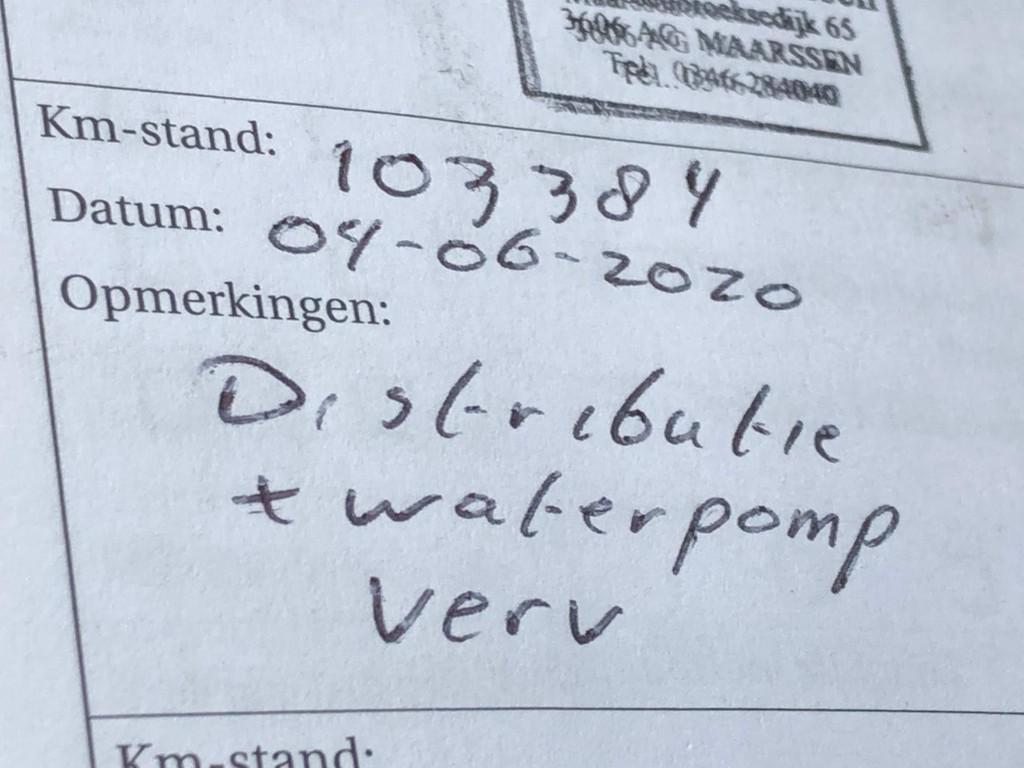 65
3606 AG MAARSSEN
Tel. 0346284040
Km-stand: 103384
Datum: 04-06-2020
Opmerkingen:
Distributie
+ waterpomp
verv
Km-stand: